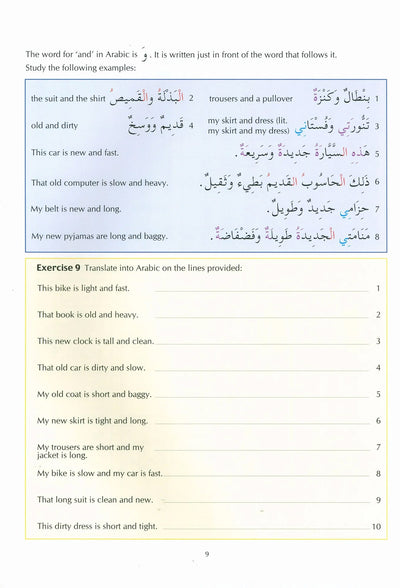 The word for 'and' in Arabic is وَ. It is written just in front of the word that follows it.
Study the following examples:
the suit and the shirt الْبَذْلَةُ والقَميصُ 2 trousers and a pullover بِنْطَالٌ وَكَنْزَةٌ 1
old and dirty قَديمٌ وَوَسِخٌ 4 my skirt and dress (lit. my skirt and my dress) تَنُّورَتي وَفُسْتَاني 3
This car is new and fast. هٰذِهِ السَّيَّارَةُ جَديدَةٌ وَسَريعَةٌ. 5
That old computer is slow and heavy. ذٰلِكَ الحَاسُوبُ القَديمُ بَطيءٌ وَثَقيلٌ. 6
My belt is new and long. حِزَامي جَديدٌ وَطَويلٌ. 7
My new pyjamas are long and baggy. مَنَامَتي الْجَديدَةُ طَويلَةٌ وَفَضْفَاضَةٌ. 8
Exercise 9 Translate into Arabic on the lines provided:
This bike is light and fast. 1
That book is old and heavy. 2
This new clock is tall and clean. 3
That old car is dirty and slow. 4
My old coat is short and baggy. 5
My new skirt is tight and long. 6
My trousers are short and my
jacket is long. 7
My bike is slow and my car is fast. 8
That long suit is clean and new. 9
This dirty dress is short and tight. 10
9